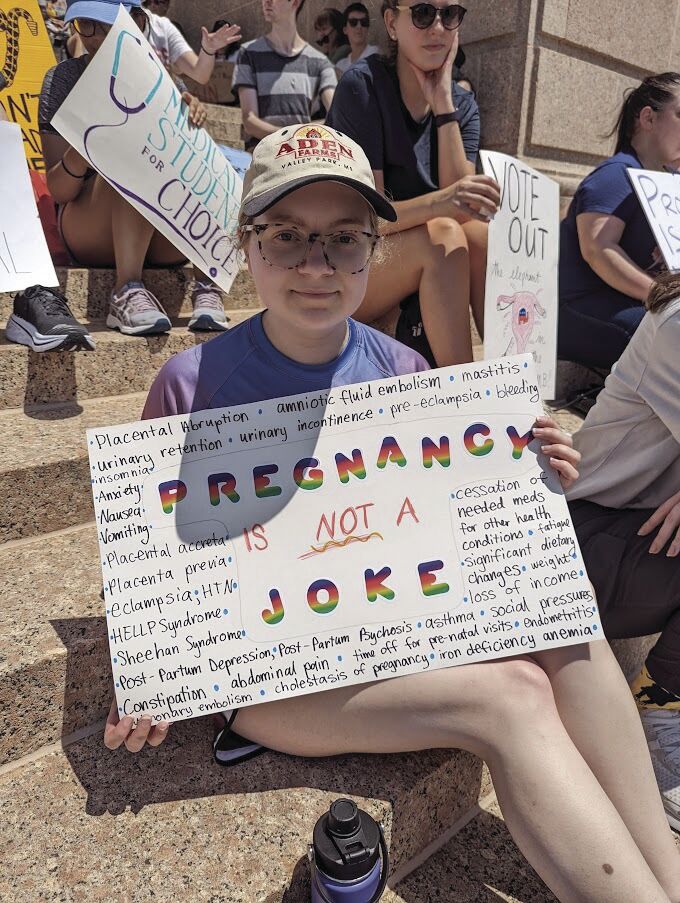 MEDICAL
STUDENTS
FOR
CHOICE
ADEN
FARMS
VALLEY PARK, MS
VOTE
OUT
the elephant
in the
Placental Abruption • amniotic fluid embolism • mastitis •
• urinary retention • urinary incontinence • pre-eclampsia • bleeding
• insomnia
• Anxiety
• Nausea
• Vomiting
• Placental accreta
• Placenta previa
• eclampsia, HTN
• HELLP Syndrome
• Sheehan Syndrome
PREGNANCY
IS NOT A
JOKE
• cessation of
needed meds
for other health
conditions • fatigue
• significant dietary
changes • weight
• loss of income
• Post-Partum Depression, Post-Partum Psychosis • asthma • social pressures
• Constipation • abdominal pain • time off for pre-natal visits • endometritis
onary embolism • cholestasis of pregnancy • iron deficiency anemia